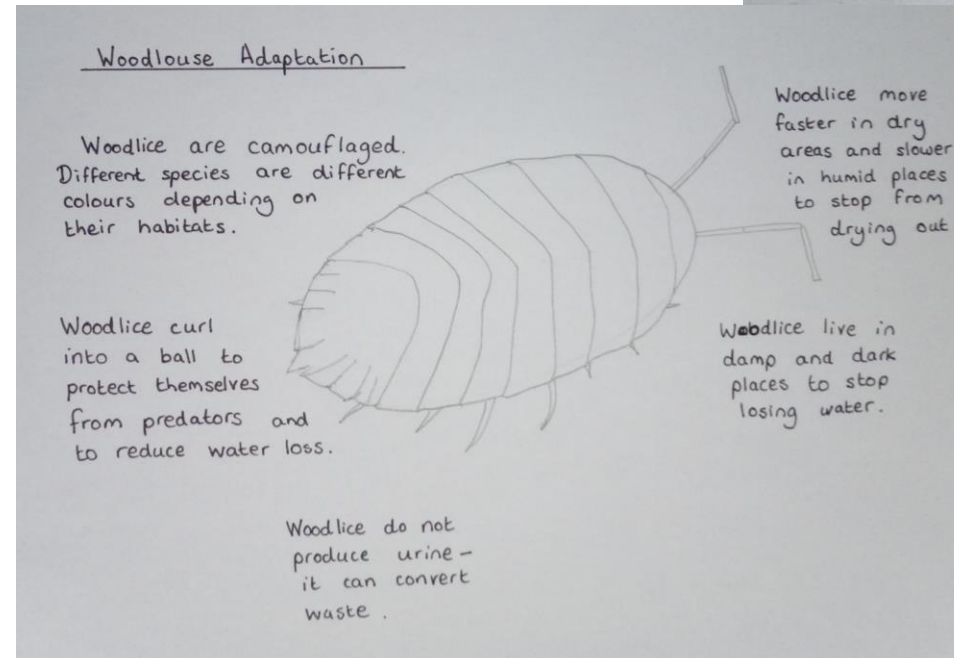 Woodlouse Adaptation
Woodlice are camouflaged.
Different species are different
colours depending on
their habitats.
Woodlice move
faster in dry
areas and slower
in humid places
to stop from
drying out
Woodlice curl
into a ball to
protect themselves
from predators and
to reduce water loss.
Woodlice live in
damp and dark
places to stop
losing water.
Woodlice do not
produce urine –
it can convert
waste.